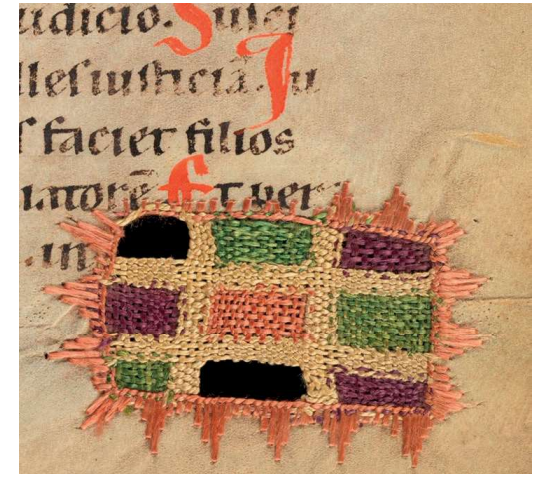 udicio. Suſci
lleſ iuſticiā. Iu
ſ faciet filios
iatorē Et per
. in